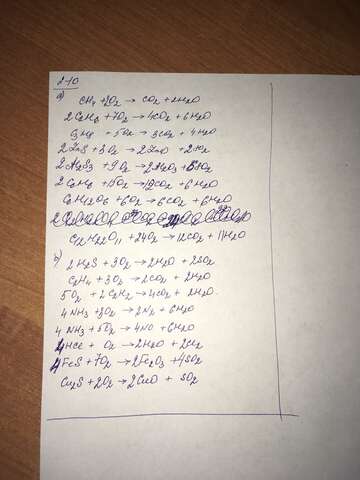 2-10
а)
CH4 + 2O2 → CO2 + 2H2O
2C2H6 + 7O2 → 4CO2 + 6H2O
C3H8 + 5O2 → 3CO2 + 4H2O
2ZnS + 3O2 → 2ZnO + 2SO2
2Al2S3 + 9O2 → 2Al2O3 + 6SO2
2C6H6 + 15O2 → 12CO2 + 6H2O
C6H12O6 + 6O2 → 6CO2 + 6H2O
C12H22O11 + 24O2 → 12CO2 + 11H2O
б) 2H2S + 3O2 → 2H2O + 2SO2
C2H4 + 3O2 → 2CO2 + 2H2O
5O2 + 2C2H2 → 4CO2 + 2H2O
4NH3 + 3O2 → 2N2 + 6H2O
4NH3 + 5O2 → 4NO + 6H2O
4HCl + O2 → 2H2O + 2Cl2
4FeS + 7O2 → 2Fe2O3 + 4SO2
Cu2S + 2O2 → 2CuO + SO2